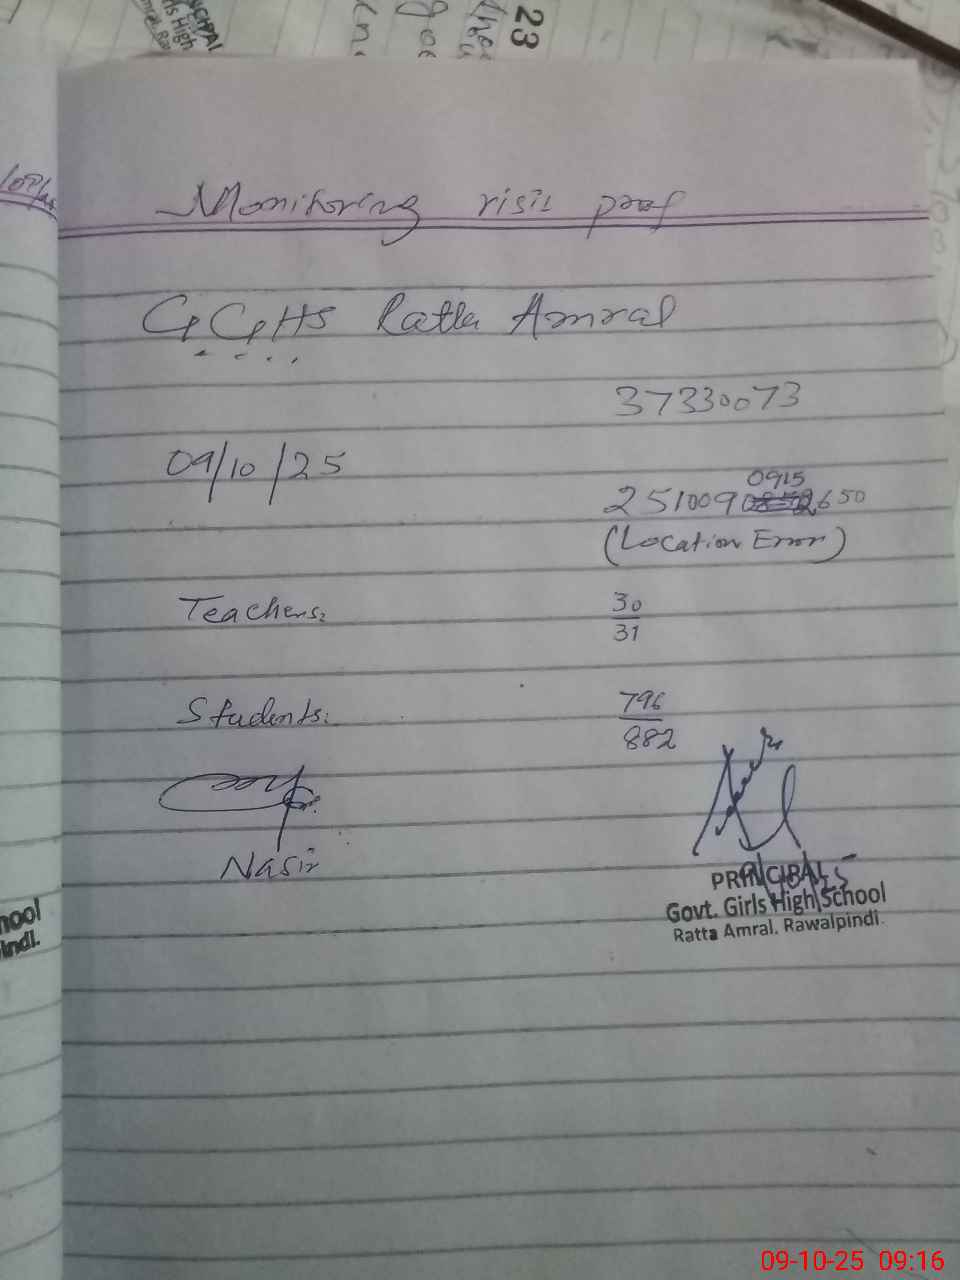 23
Monitoring visit proof
GGHS Ratta Amral
37330073
09/10/25
0915
2510090 2650
(Location Error)
Teachers: 30
31
Students: 796
882
Nasir
PRINCIPAL
Govt. Girls High School
Ratta Amral. Rawalpindi.
hool
indi.
09-10-25 09:16